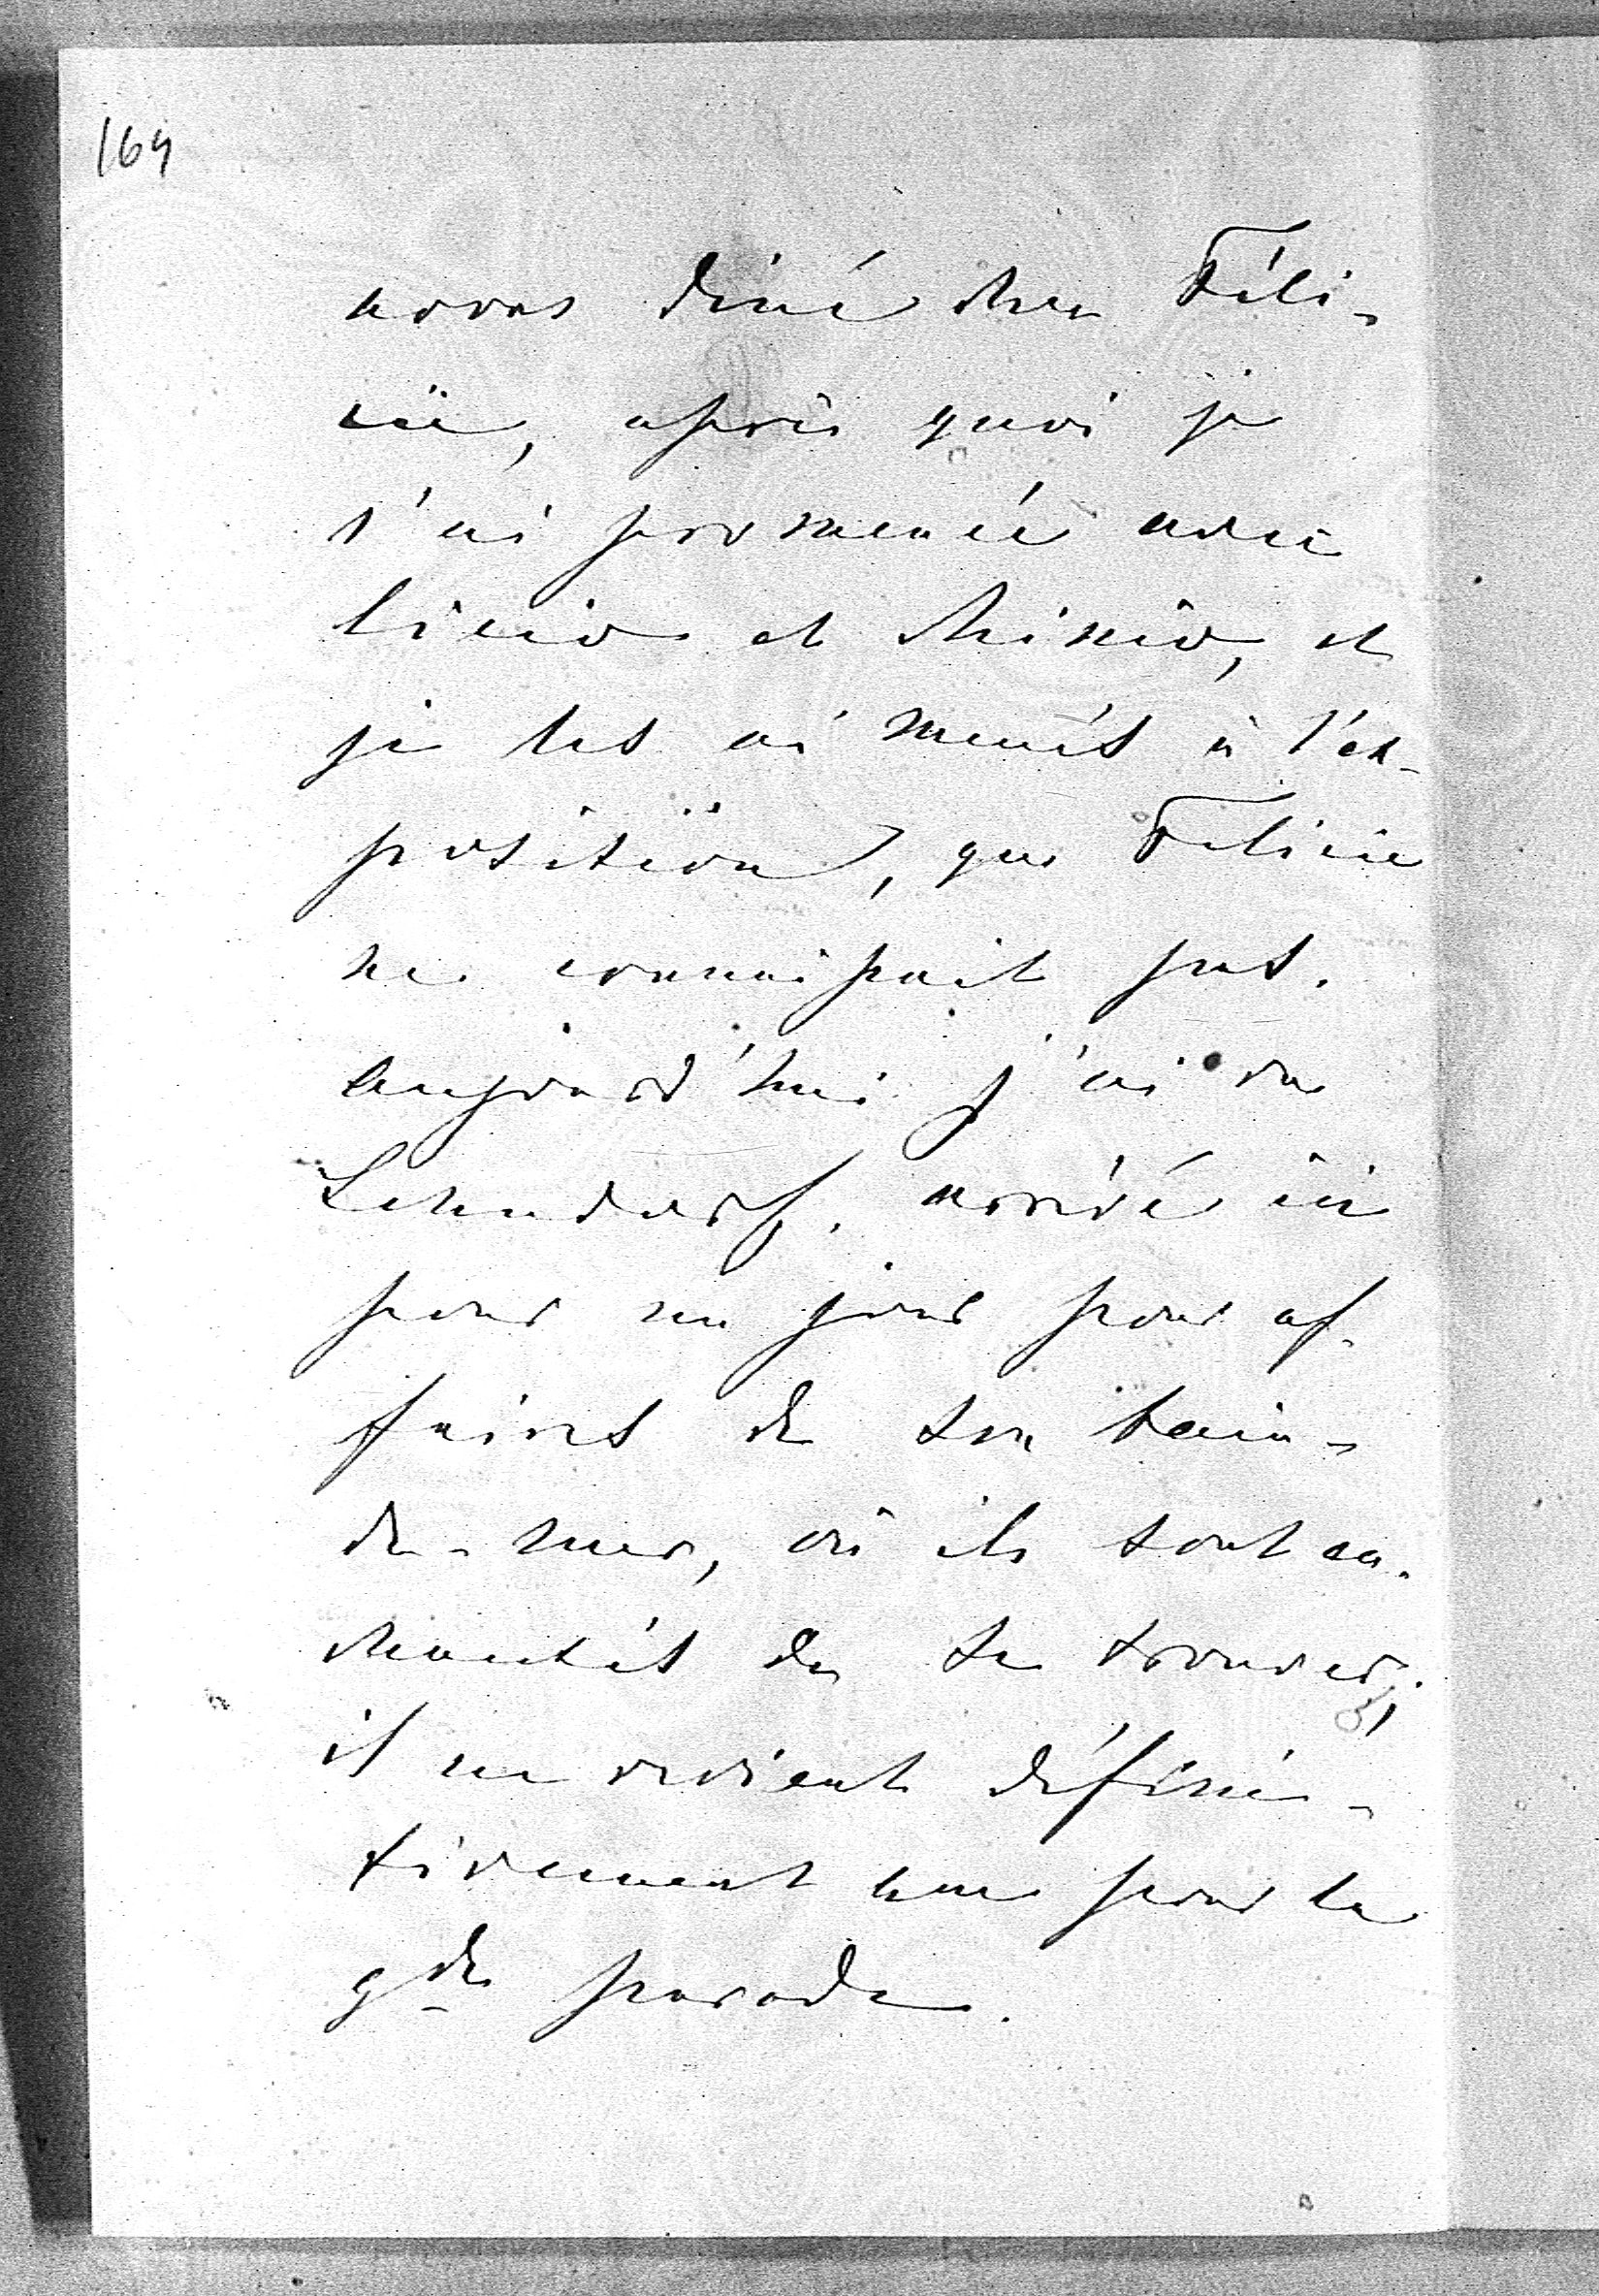 164
avons diné chez Féli-
cie, après quoi je
l'ai promenée avec
et
je les ai menés à l'ex-
position, que Félicie
ne connaissait pas.
aujourd'hui j'ai vu
Lehndorf, arrivé ici
pour un jour pour af-
faires de son bain-
de-mer, où ils sont en-
chantés de se trouver;
il ne revient défini-
tivement que pour la
gde parade.